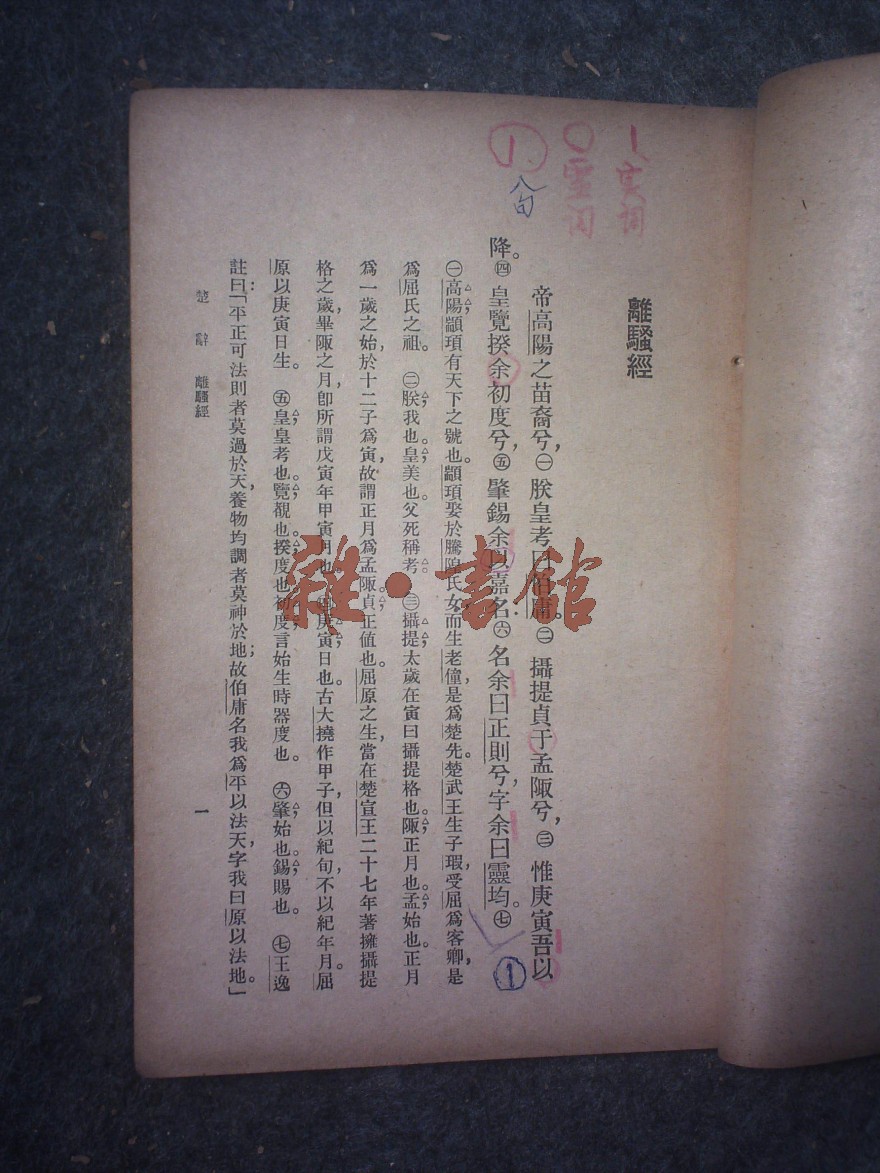 1 实词
〇 靈
1 八句
離騷經
帝高陽之苗裔兮，㊀朕皇考曰伯庸。㊁攝提貞于孟陬兮，㊂惟庚寅吾以
降。㊃皇覽揆余初度兮，㊄肇錫余以嘉名㊅名余曰正則兮，字余曰靈均。㊆
①
㊀高陽，顓頊有天下之號也。顓頊娶於騰隍氏女，而生老僮，是爲楚先。楚武王生子瑕，受屈爲客卿，是
爲屈氏之祖。㊁朕，我也。皇，美也。父死稱考。㊂攝提，太歲在寅曰攝提格也。陬，正月也。孟，始也。正月
爲一歲之始，於十二子爲寅，故謂正月爲孟陬。貞，正値也。屈原之生，當在楚宣王二十七年著擁攝提
格之歲，畢陬之月，卽所謂戊寅年甲寅月也。㊃庚寅，日也。古大撓作甲子，但以紀旬，不以紀年月。屈
原以庚寅日生。㊄皇，皇考也。覽，觀也。揆，度也。初度，言始生時器度也。㊅肇，始也。錫，賜也。㊆王逸
註曰：「平正可法則者莫過於天，養物均調者莫神於地；故伯庸名我爲平以法天，字我曰原以法地。」
楚辭 離騷經
一
雜·書館